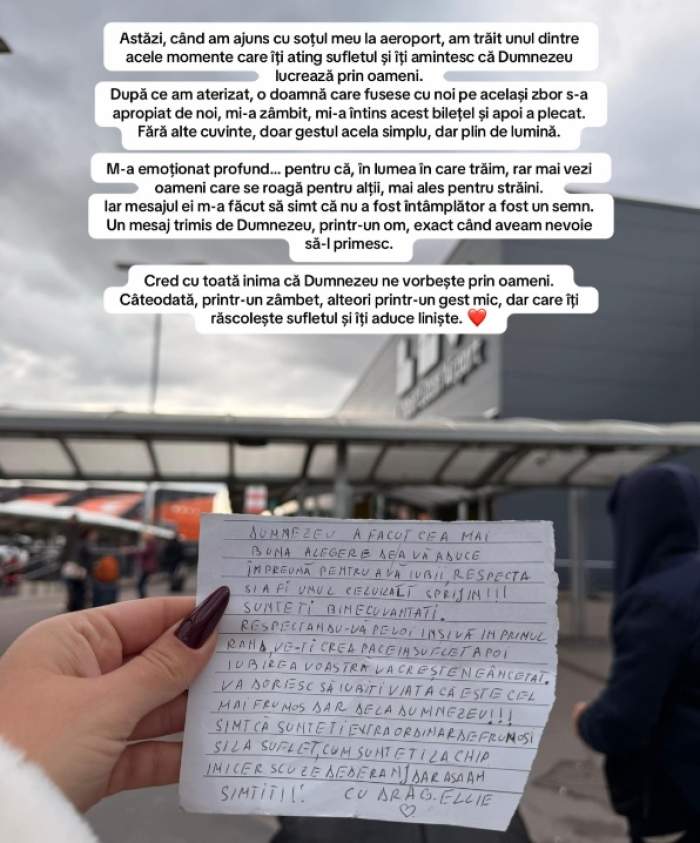 Astăzi, când am ajuns cu soțul meu la aeroport, am trăit unul dintre
acele momente care îți ating sufletul și îți amintesc că Dumnezeu
lucrează prin oameni.
După ce am aterizat, o doamnă care fusese cu noi pe același zbor s-a
apropiat de noi, mi-a zâmbit, mi-a întins acest bilețel și apoi a plecat.
Fără alte cuvinte, doar gestul acela simplu, dar plin de lumină.
M-a emoționat profund... pentru că, în lumea în care trăim, rar mai vezi
oameni care se roagă pentru alții, mai ales pentru străini.
Iar mesajul ei m-a făcut să simt că nu a fost întâmplător a fost un semn.
Un mesaj trimis de Dumnezeu, printr-un om, exact când aveam nevoie
să-l primesc.
Cred cu toată inima că Dumnezeu ne vorbește prin oameni.
Câteodată, printr-un zâmbet, alteori printr-un gest mic, dar care îți
răscolește sufletul și îți aduce liniște. ❤️
DUMNEZEU A FACUT CEA MAI
BUNA ALEGERE DE A VĂ ADUCE
ÎMPREUNĂ PENTRU A VĂ IUBII, RESPECTA
SI A FI UNUL CELUILALT SPRIJIN!!!
SUNTETI BINECUVANTATI.
RESPECTANDU-VĂ PE VOI INSIVĂ IN PRIMUL
RAND, VE-TI CREA PACE IN SUFLET APOI
IUBIREA VOASTRĂ VA CREȘTE NEÂNCETAT.
VA DORESC SĂ IUBITI VIATA CĂ ESTE CEL
MAI FRUMOS DAR DE LA DUMNEZEU!!!
SIMT CĂ SUNTETI EXTRAORDINAR DE FRUMOSI
SI LA SUFLET, CUM SUNTETI LA CHIP
IMI CER SCUZE DE DERANJ DAR ASA AM
SIMTIT!! CU DRAG, ELLIE